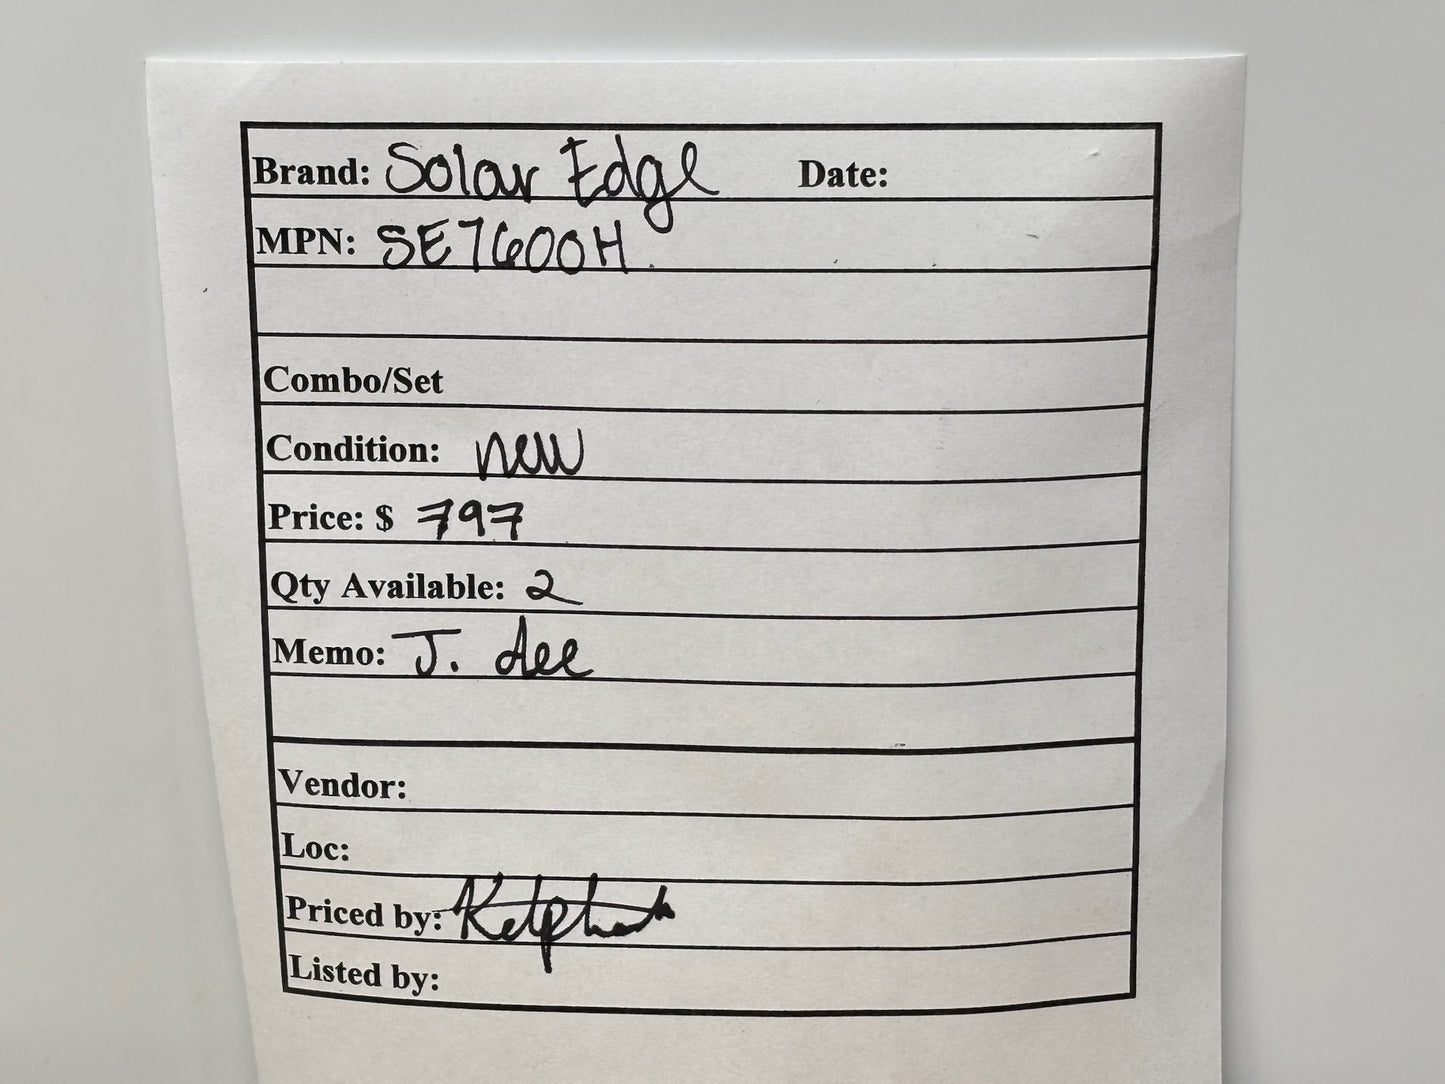 Brand: Solar Edge Date:
MPN: SE7600H
Combo/Set
Condition: new
Price: $ 797
Qty Available: 2
Memo: J. dee
Vendor:
Loc:
Priced by:
Listed by: